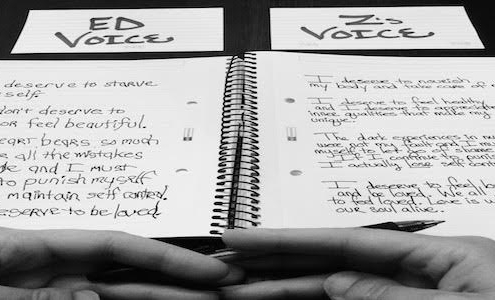 ED
VOICE
Z's
VOICE
deserve to starve
self.
don't deserve to
or feel beautiful.
heart bears so much
all the mistakes
and I must
to punish myself
maintain self control.
deserve to be loved
I deserve to nourish
my body and take care of
I deserve to feel healthy
and I deserve to appreciate
inner qualities that make my
unique.
The dark experiences in
were not my fault and I must
If I continue to punish
I actually lose self
I deserve to feel
and be loved. We
to feel loved. Love is
our soul alive.